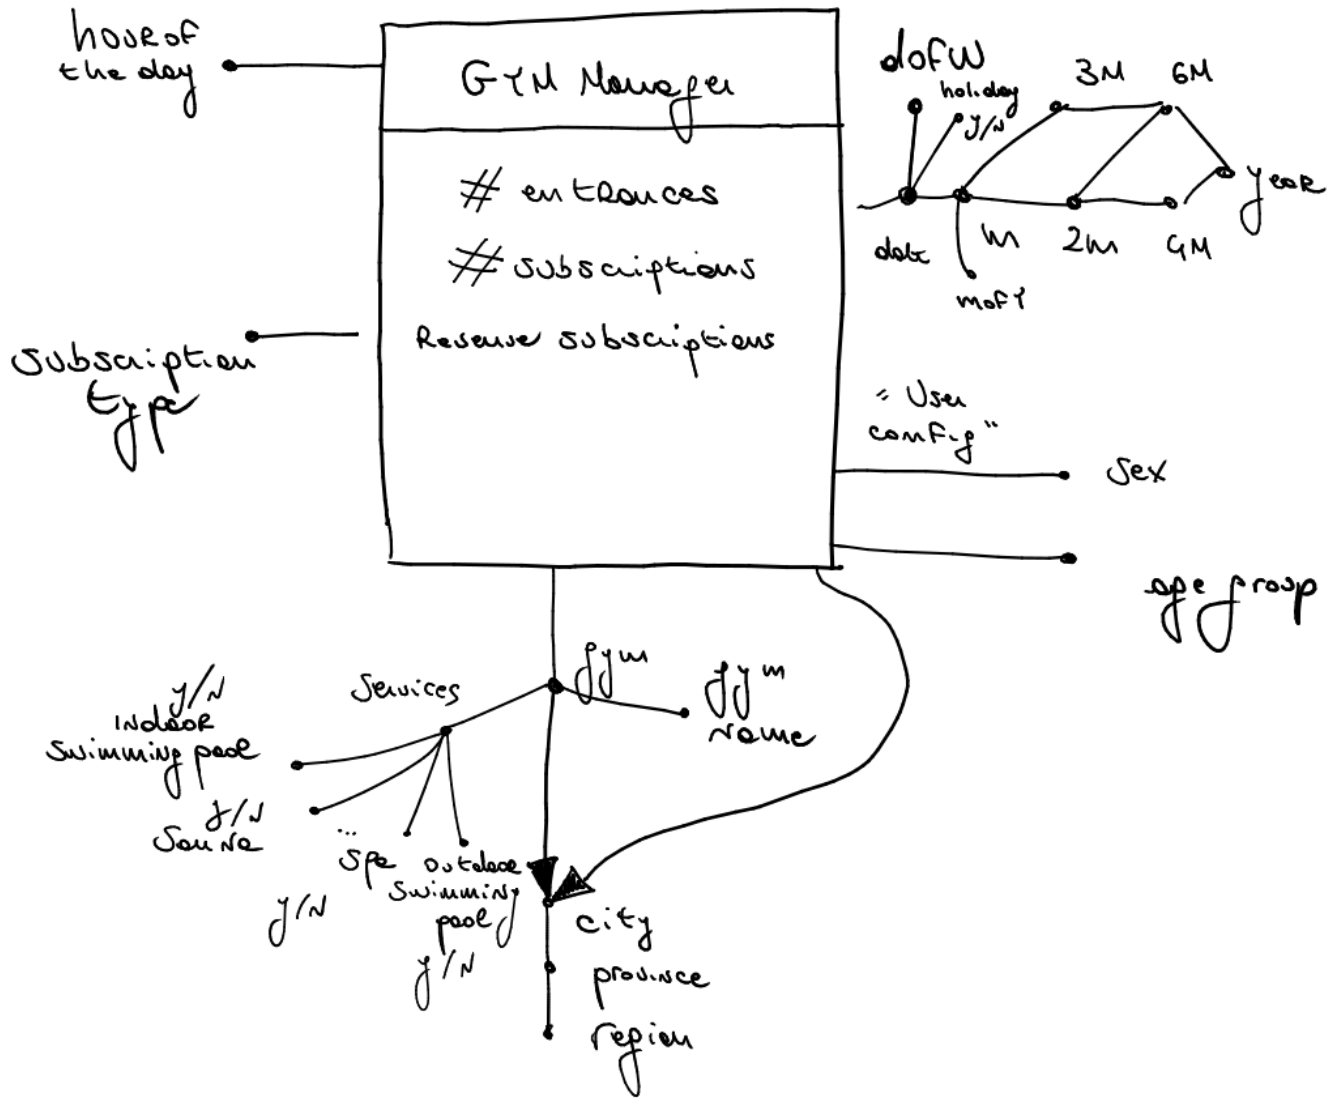 hour of
the day
GYM Manager
# entrances
# subscriptions
Revenue subscriptions
subscription
type
dofW
holiday
Y/N
3M
6M
year
date
m
2m
4M
mofY
"User
config"
Sex
age group
gym
gym
name
Services
Y/N
Indoor
swimming pool
Y/N
Sauna
...
Spa
Y/N
outdoor
swimming
pool
Y/N
city
province
region